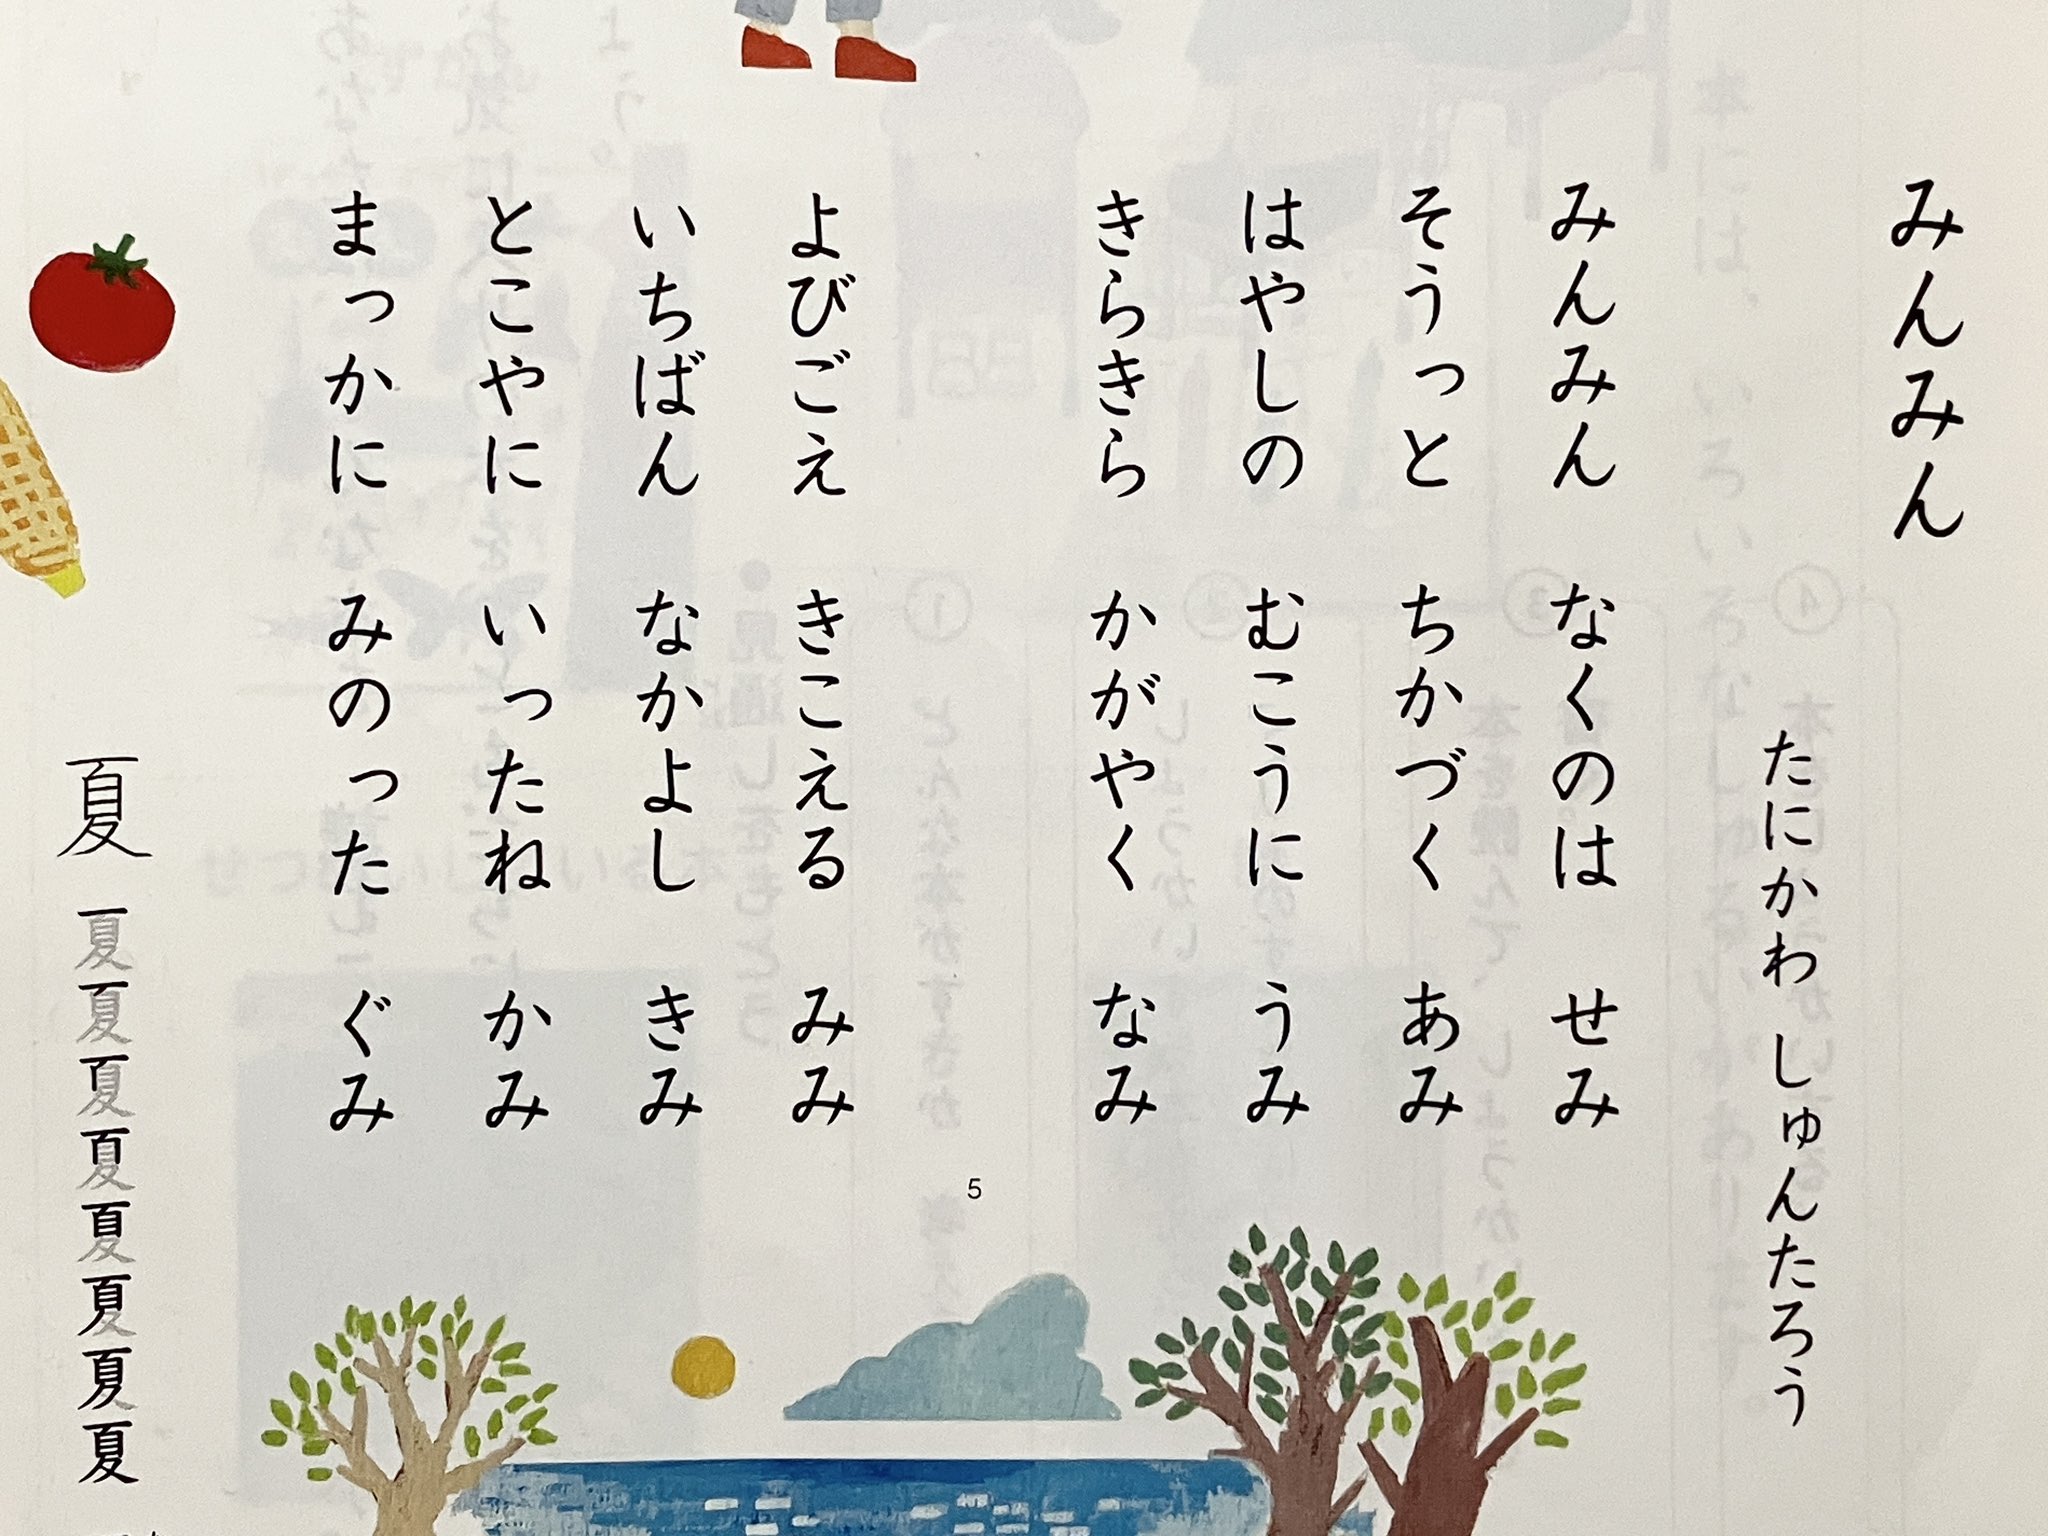 みんみん
たにかわ しゅんたろう
みんみんみん なくのは せみ
そうっと ちかづく あみ
はやしの むこうに うみ
きらきら かがやく なみ
よびごえ きこえる みみ
いちばん なかよし きみ
とこやに いったね かみ
まっかに みのった ぐみ
夏 夏 夏 夏 夏 夏 夏 夏 夏
5